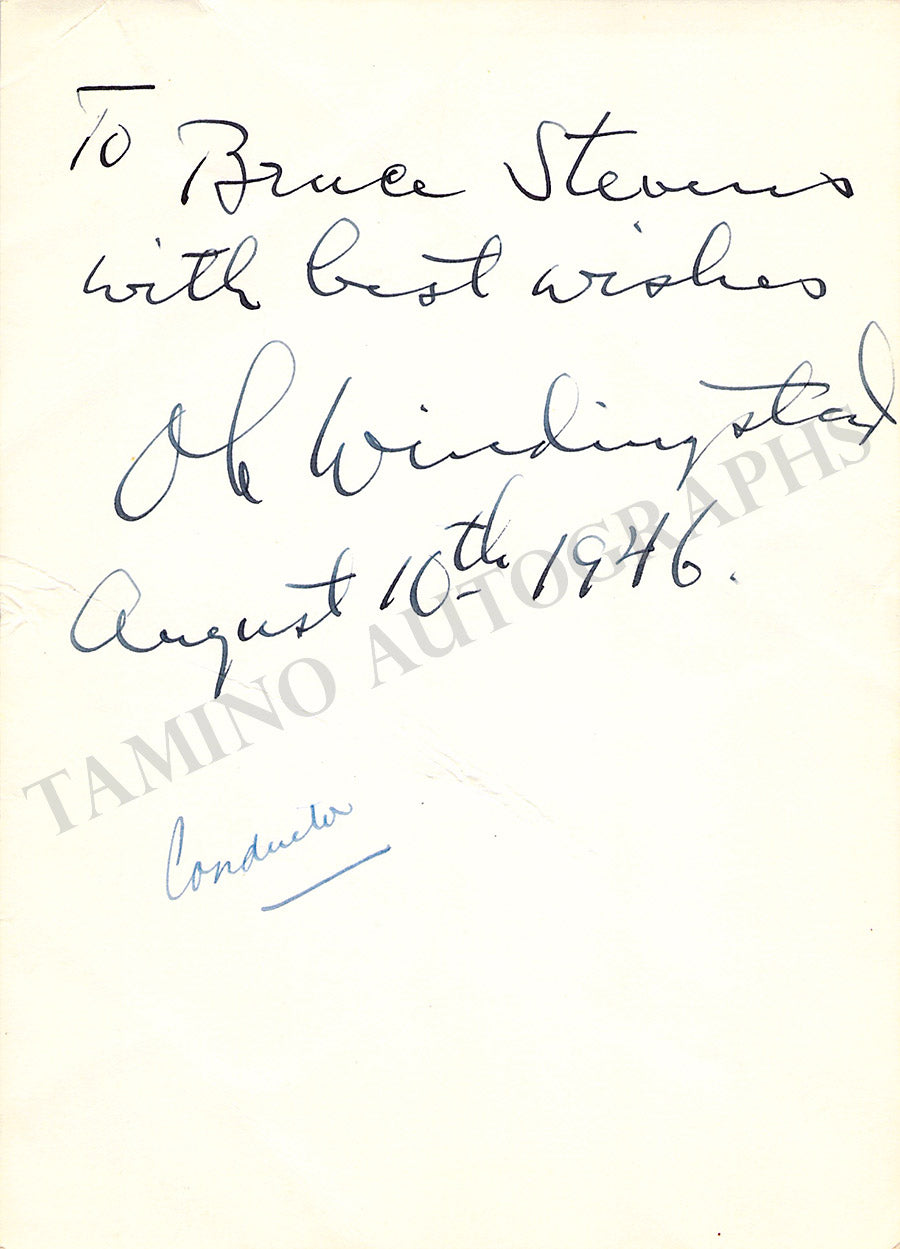 To Bruce Stevens
with best wishes
Ole Windingstad
August 10th 1946.
TAMINO AUTOGRAPHS
Conductor